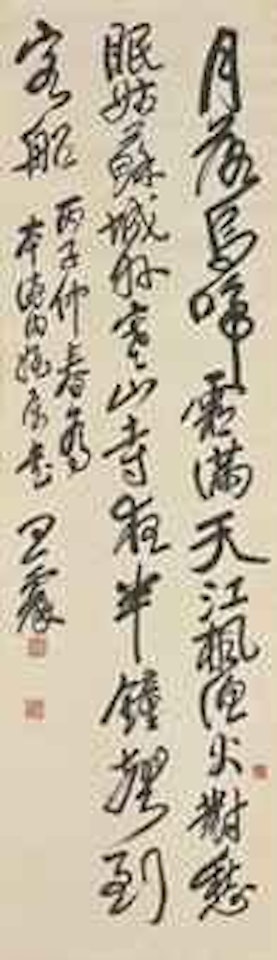 月落烏啼霜滿天江楓漁火對愁
眠姑蘇城外寒山寺夜半鐘聲到
客船
丙子仲春為
本
王震